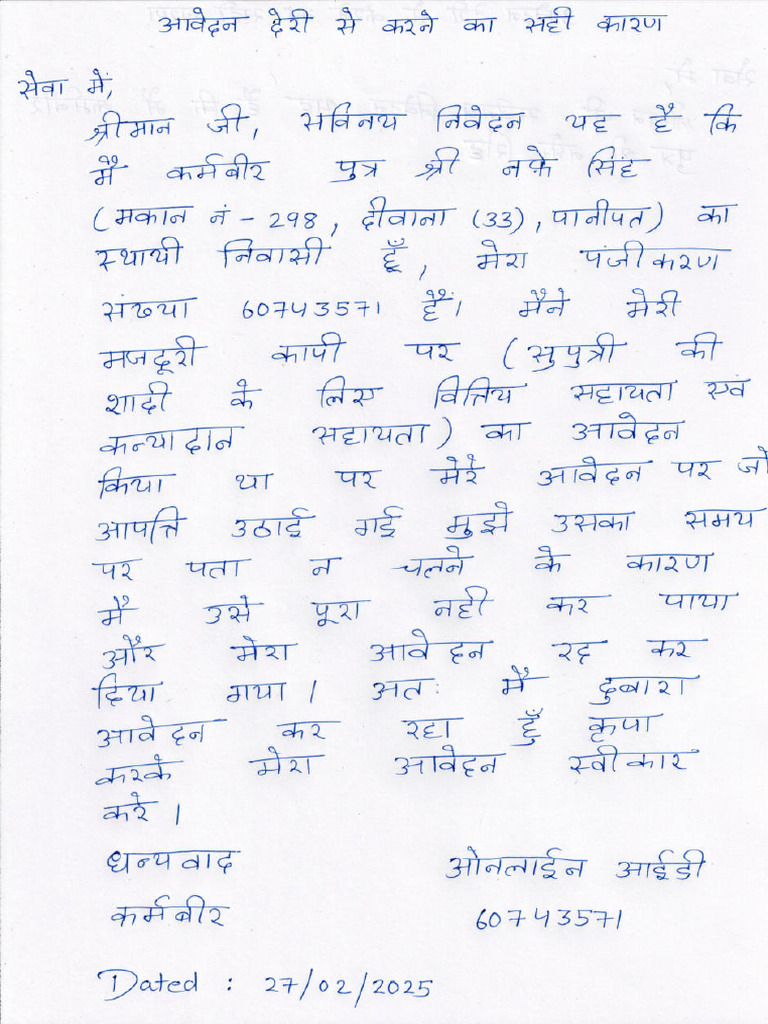 आवेदन देरी से करने का सही कारण
सेवा में,
श्रीमान जी, सविनय निवेदन यह है कि
मै कर्मबीर पुत्र श्री नफे सिंह
(मकान नं - 298, दीवाना (33), पानीपत) का
स्थायी निवासी हूँ, मेरा पंजीकरण
संख्या 60743571 हैं। मैने मेरी
मजदूरी कापी पर (सुपुत्री की
शादी के लिए वित्तिय सहायता एवं
कन्यादान सहायता) का आवेदन
किया था पर मेरे आवेदन पर जो
आपत्ति उठाई गई मुझे उसका समय
पर पता न चलने के कारण
मै उसे पूरा नही कर पाया
और मेरा आवेदन रद्द कर
दिया गया। अतः मै दुबारा
आवेदन कर रहा हुँ कृपा
करके मेरा आवेदन स्वीकार
करे।
धन्यवाद ओनलाईन आईडी
कर्मबीर 60743571
Dated : 27/02/2025